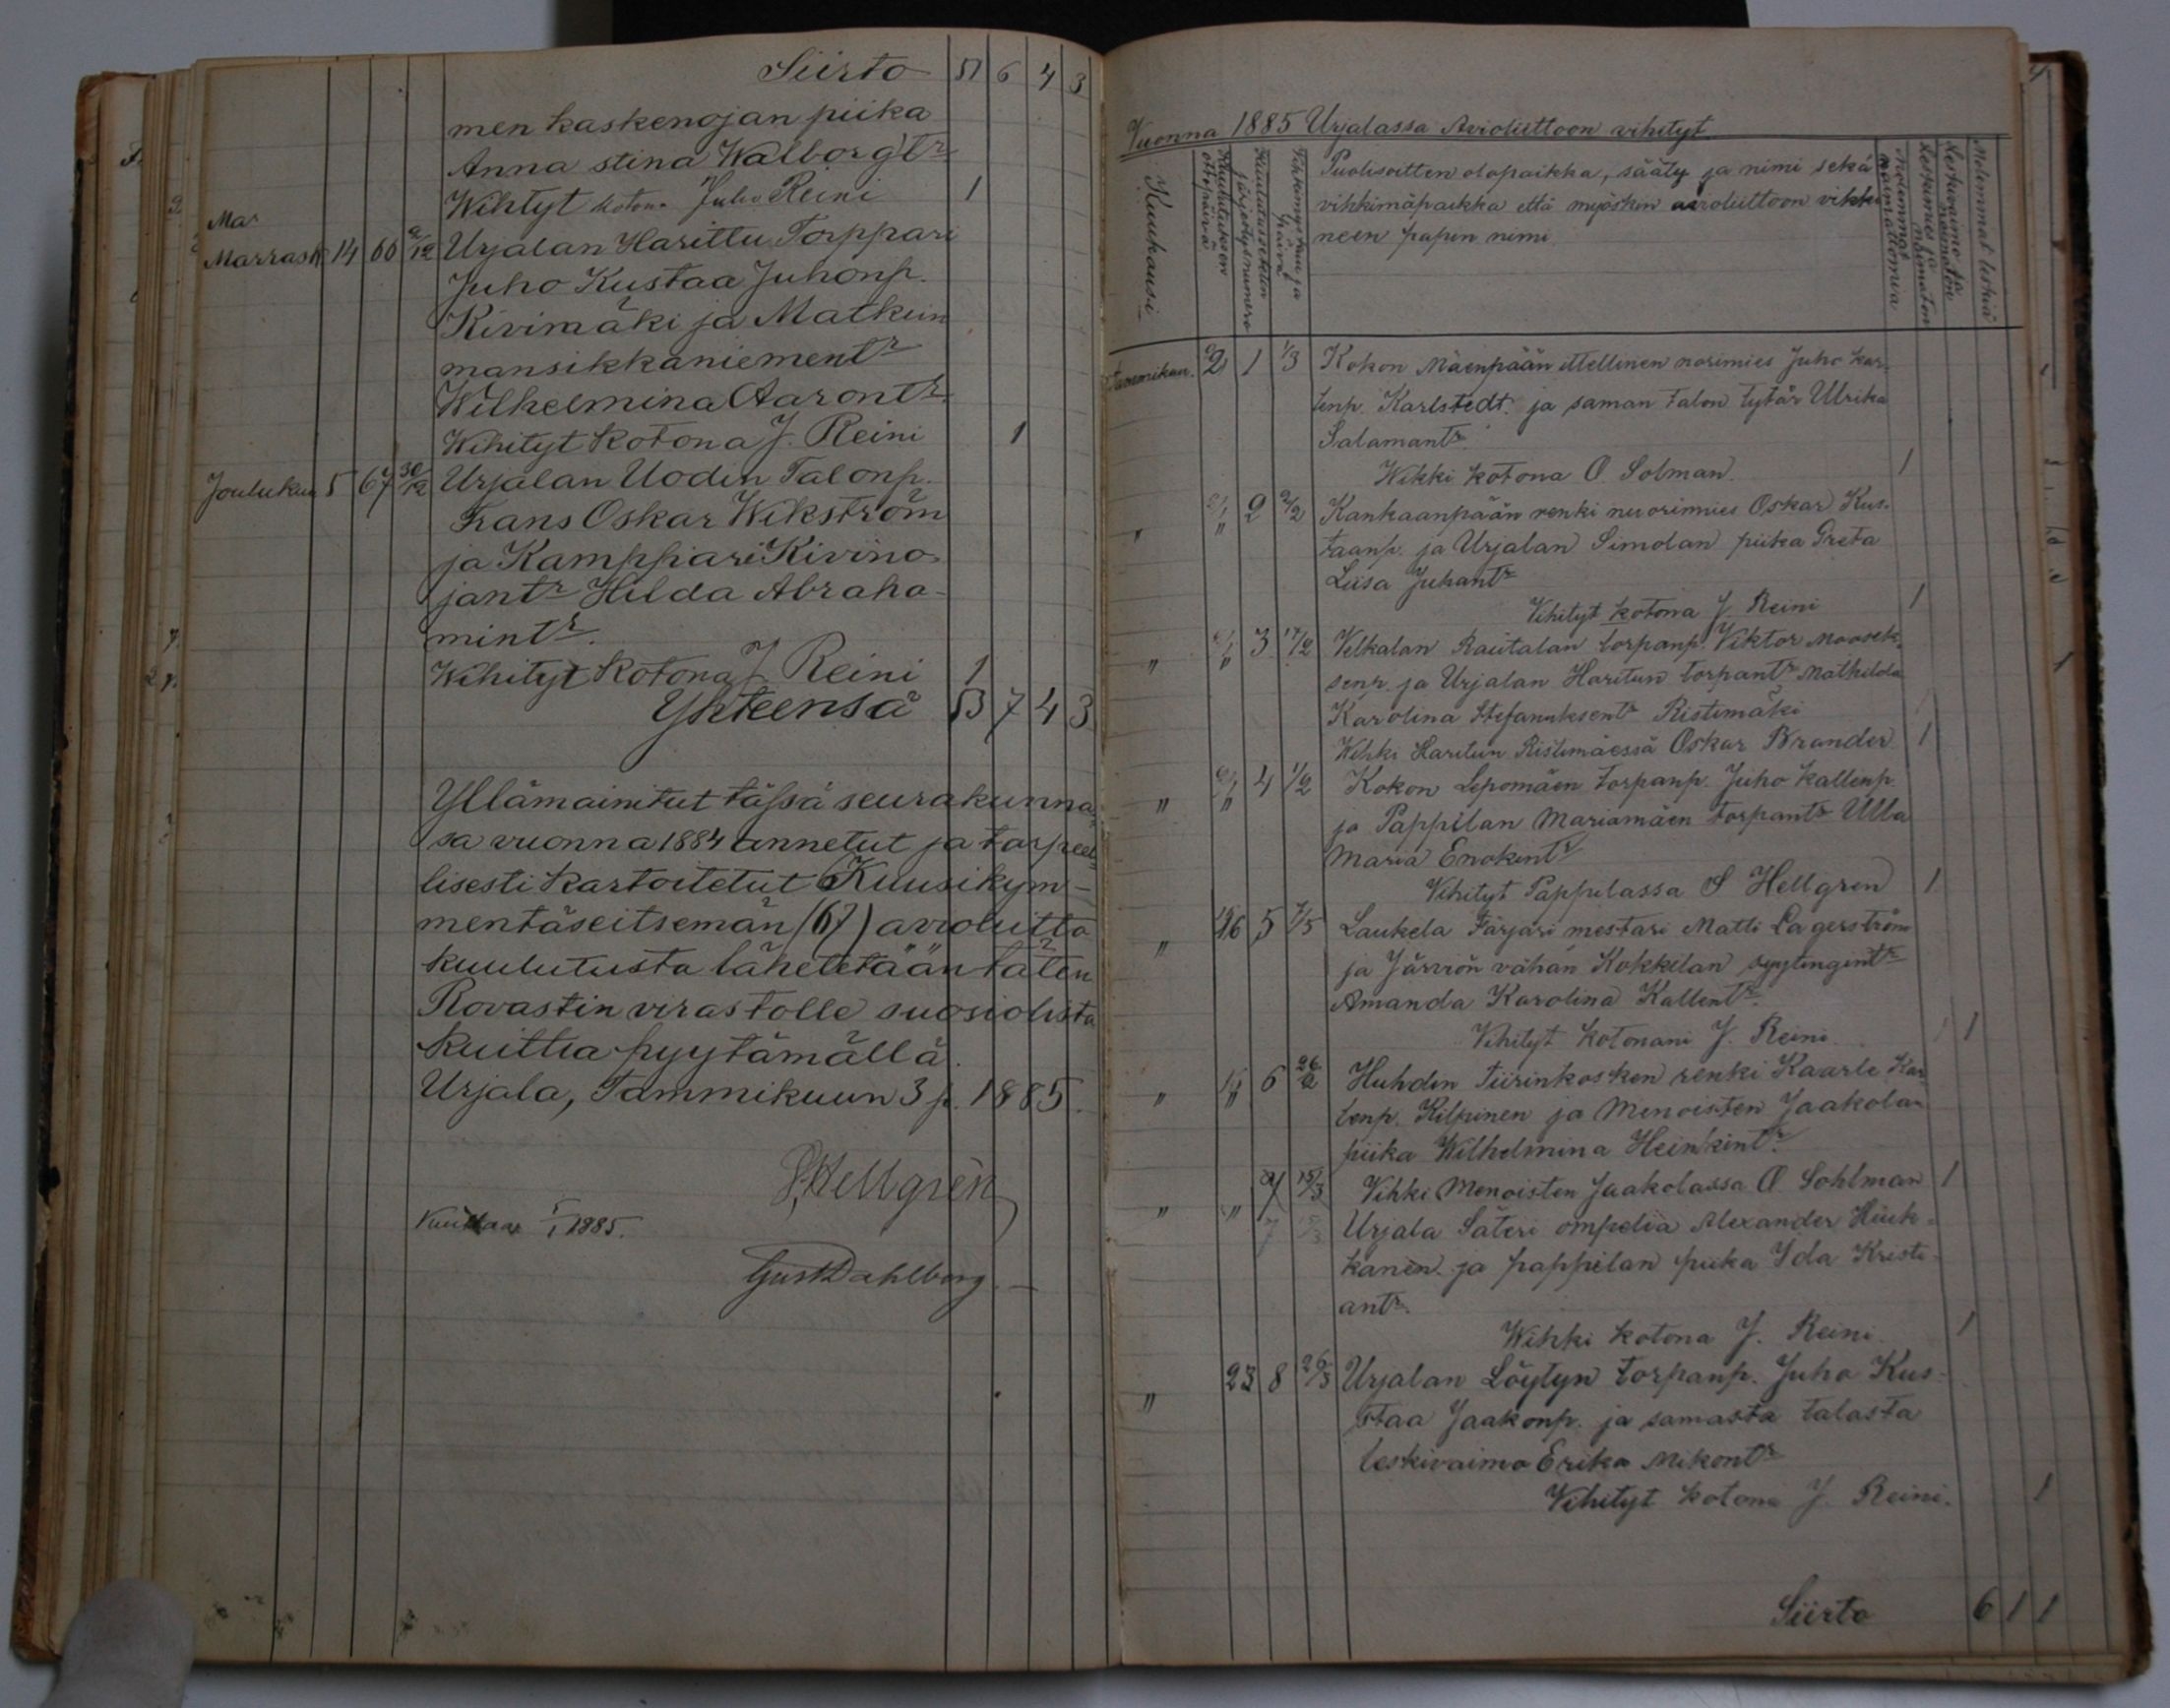 Siirto 51 6 4 3
men kaskenojan piika
Anna stina Walborg tr
Wihityt kotona Juho Reini 1
Mar
Marrask 14 66 9/12 Urjalan Harittu Torppari
Juho Kustaa Juhonp.
Kivimäki ja Matkun
mansikkaniementr
Wilhelmina Aarontr
Wihityt kotona J. Reini 1
Joulukuu 5 67 30/12 Urjalan Uodin Talonp.
Frans Oskar Wikström
ja Kamppari Kivino-
jantr Hilda Abraha-
mintr.
Wihityt kotona J Reini 1
Yhteensä 53 7 4 3
Yllämainitut tässä seurakunna
sa vuonna 1884 annetut ja tarpeel
lisesti kartoitetut Kuusikym-
mentäseitsemän (67) avioliitto
kuulutusta lähetetään täten
Rovastin virastolle suosiolista
kuittia pyytämällä.
Urjala, Tammikuun 3 p. 1885.
S. Hellgrén
Kuittaa 1885.
Gust Dahlberg
Vuonna 1885 Urjalassa Avioliittoon vihityt
Kuukausi
Kuulutuksen ottopäivä
Kuulutussetelin järjestysnumero
Vihkimyskuu ja päivä
Puolisoitten olopaikka, sääty ja nimi sekä
vihkimäpaikka että myöskin avioliittoon vihki
neen papin nimi
Molemmat naimattomia
Leskimies ja naimaton
Leskivaimo ja naimaton
Molemmat leskiä
Tammikuu. 2 1 1/3 Kokon Mäenpään ittellinen norimies Juho Kar-
lenp. Karlstedt. ja saman talon tytär Ulrika
Salamantr
Wihki kotona O. Solman. 1
" " 2 2/2 Kankaanpään renki nuorimies Oskar Kus-
taanp. ja Urjalan Simolan piika Greta
Liisa Juhantr
Vihityt kotona J. Reini 1
" " 3 17/2 Velkalan Rautalan torpanp. Viktor Moosek-
senp. ja Urjalan Haritun torpantr Mathilda
Karolina Stefanuksentr Ristimäki
Wihki Haritun Ristimäessä Oskar Brander 1
" " 4 1/2 Kokon Lepomäen torpanp. Juho Kallenp.
ja Pappilan Mariamäen torpantr Ulla
Maria Enokintr
Vihityt Pappilassa S Hellgren 1
" 16 5 7/5 Laukela Färjäri mestari Matti Lagerström
ja Järviön vähän Kokkilan syytingintr
Amanda Karolina Kallentr.
Vihityt kotonani J. Reini. 1
" " 6 26/2 Huhdin Tiirinkosken renki Kaarle Kar-
lenp. Kilpinen ja Menoisten Jaakolan
piika Wilhelmina Heinkintr.
7 15/3 Vihki Menoisten Jaakolassa O. Sohlman 1
" " 7 15/3 Urjala Säteri ompelia Alexander Hiuk-
kanen. ja pappilan piika Ida Kristi-
antr.
Wihki kotona J. Reini. 1
" 23 8 26/3 Urjalan Löytyn torpanp. Juho Kus-
staa Jaakonp. ja samasta talosta
leskivaimo Erika Mikontr
Vihityt kotona J. Reini. 1
Siirto 6 1 1